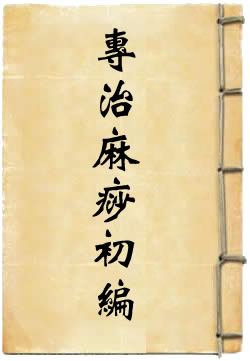 專治麻痧初編